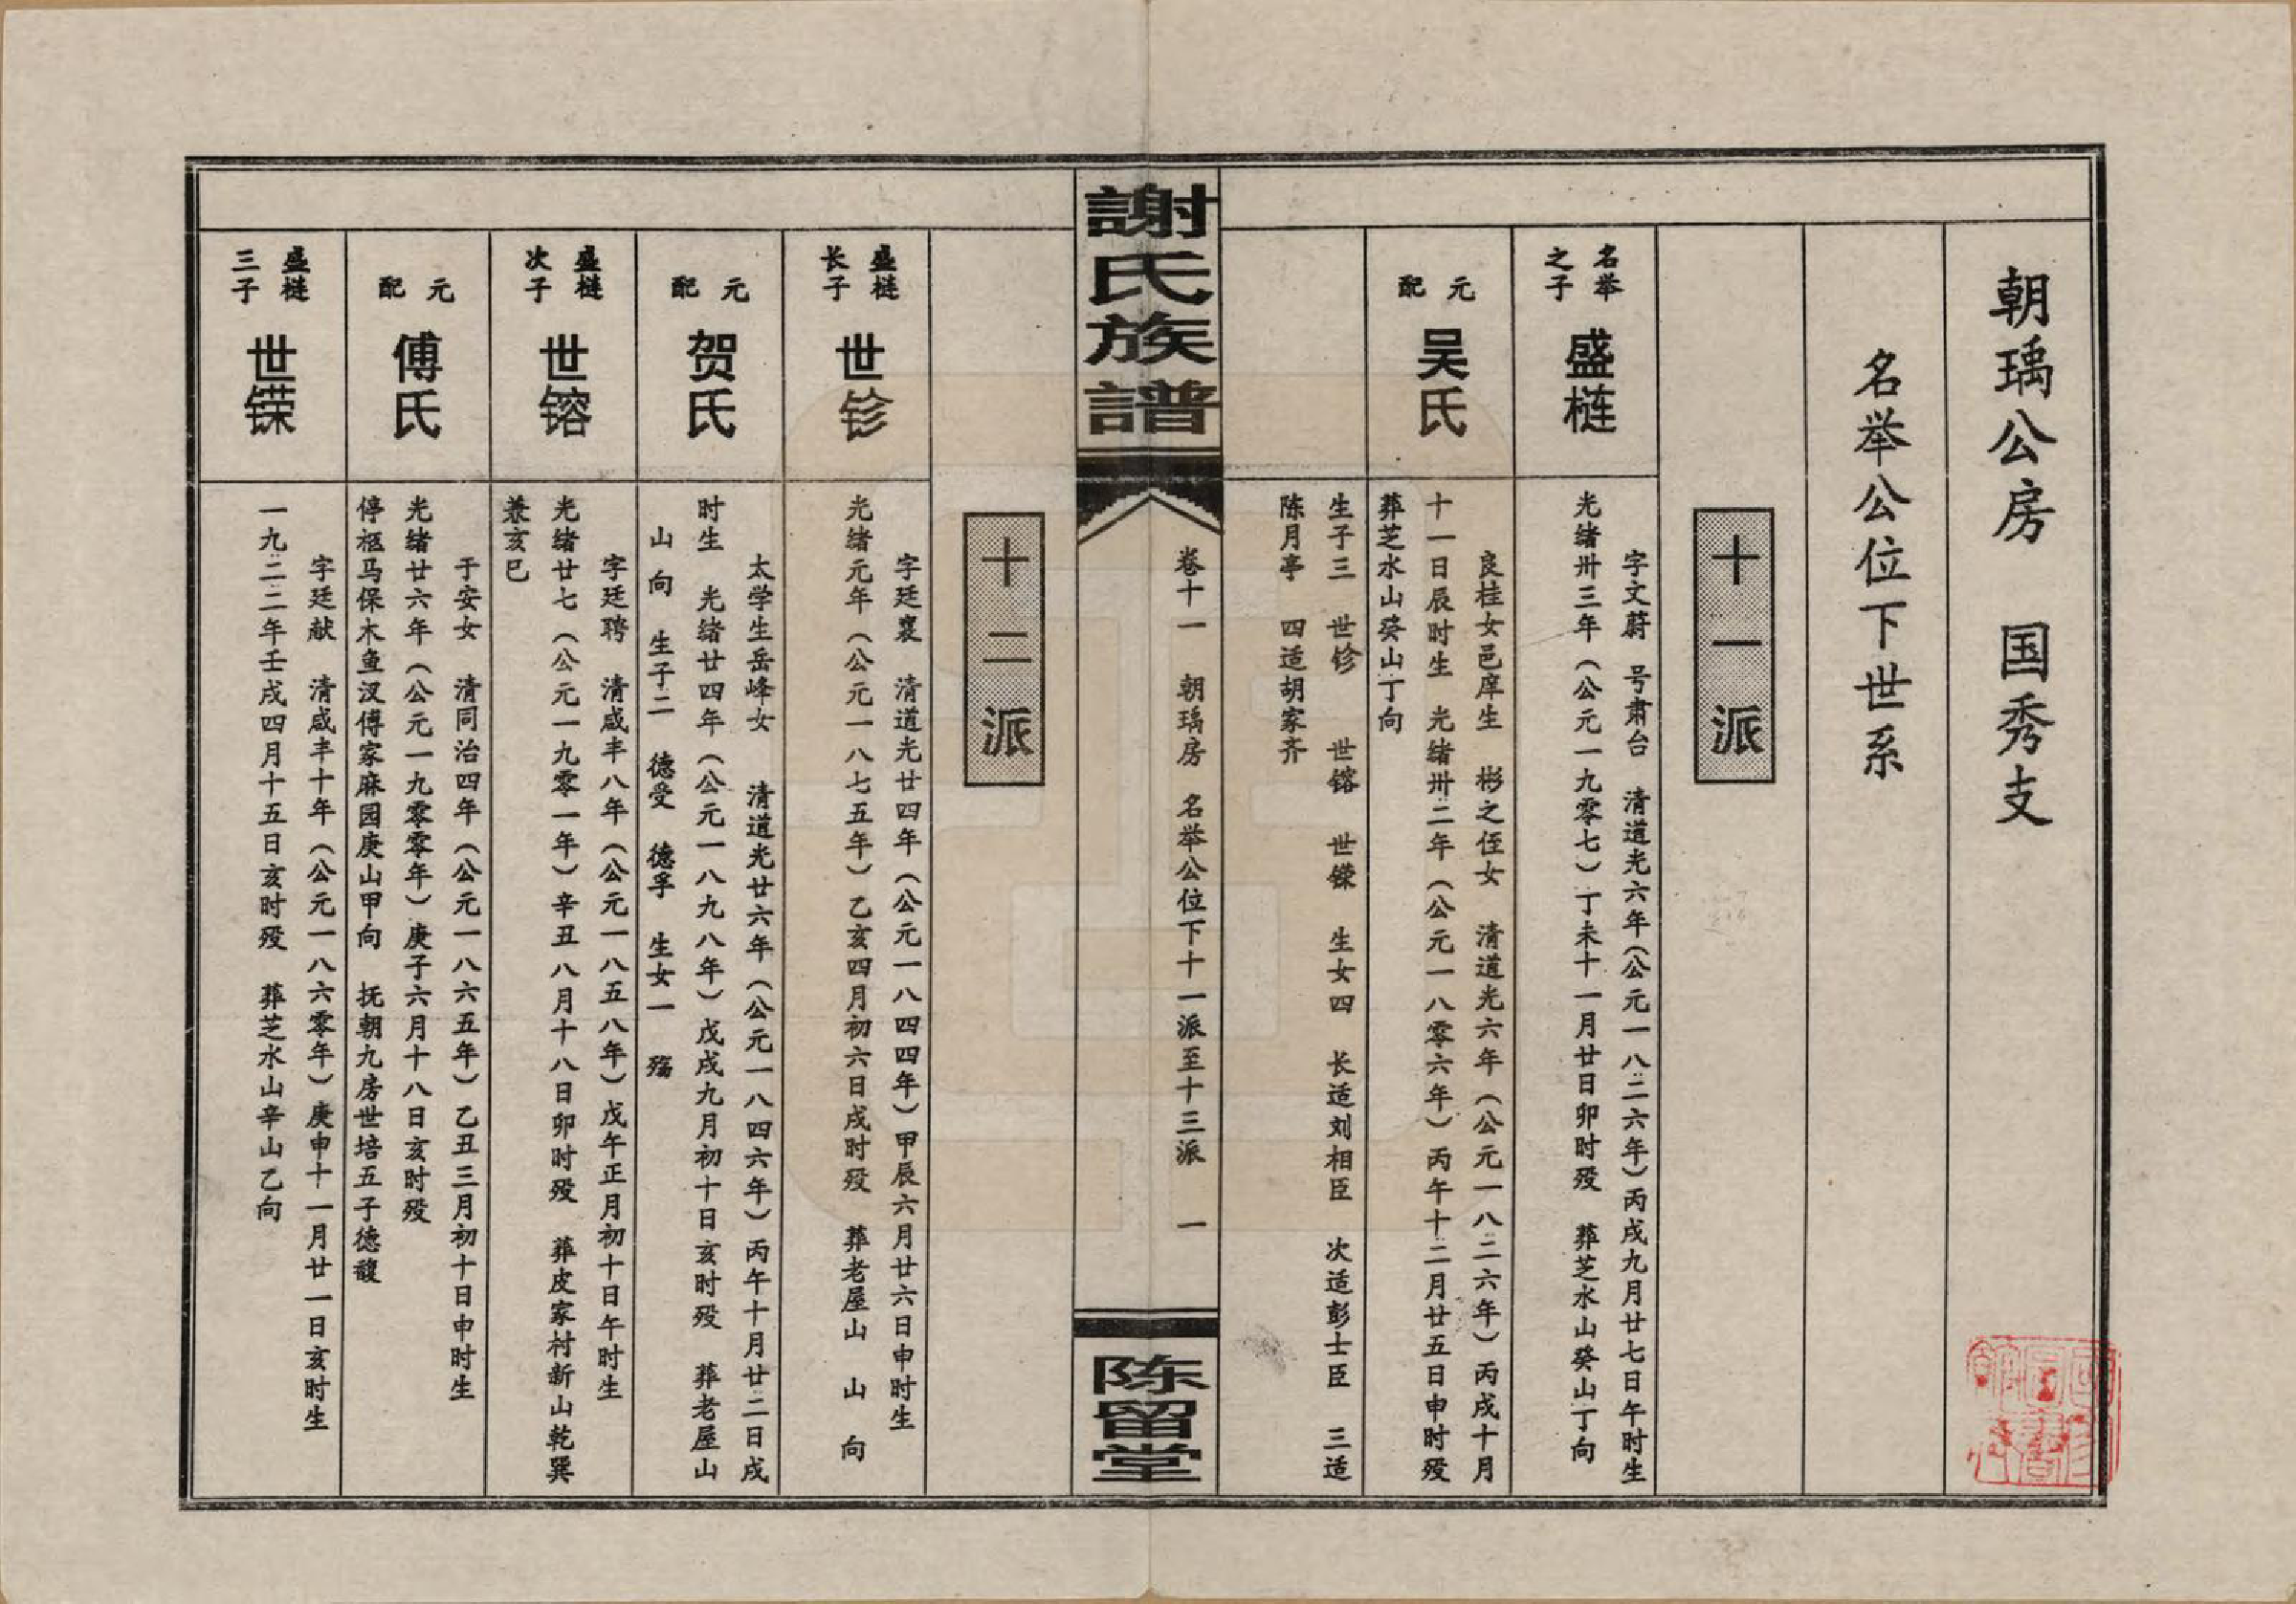 朝瑀公房　国秀支
名举公位下世系
十一派
名举
之子
盛梿
字文蔚　号肃台　清道光六年（公元一八二六年）丙戌九月廿七日午时生
光绪卅三年（公元一九零七）丁未十一月廿日卯时殁　葬芝水山癸山丁向
元
配
吴氏
良桂女邑庠生　彬之侄女　清道光六年（公元一八二六年）丙戌十月
十一日辰时生　光绪卅二年（公元一八零六年）丙午十二月廿五日申时殁
葬芝水山癸山丁向
生子三　世钐　世镕　世镙　生女四　长适刘相臣　次适彭士臣　三适
陈月亭　四适胡家齐
謝氏族譜
卷十一　朝瑀房　名举公位下十一派至十三派　一
陈留堂
十二派
盛梿
长子
世钐
字廷襄　清道光廿四年（公元一八四四年）甲辰六月廿六日申时生
光绪元年（公元一八七五年）乙亥四月初六日戌时殁　葬老屋山　山　向
元
配
贺氏
太学生岳峰女　清道光廿六年（公元一八四六年）丙午十月廿二日戌
时生　光绪廿四年（公元一八九八年）戊戌九月初十日亥时殁　葬老屋山
山　向　生子二　德受　德孚　生女一　殇
盛梿
次子
世镕
字廷聘　清咸丰八年（公元一八五八年）戊午正月初十日午时生
光绪廿七（公元一九零一年）辛丑八月十八日卯时殁　葬皮家村新山乾巽
兼亥巳
元
配
傅氏
于安女　清同治四年（公元一八六五年）乙丑三月初十日申时生
光绪廿六年（公元一九零零年）庚子六月十八日亥时殁
停柩马保木鱼汊傅家麻园庚山甲向　抚朝九房世培五子德馥
盛梿
三子
世镙
字廷献　清咸丰十年（公元一八六零年）庚申十一月廿一日亥时生
一九二二年壬戌四月十五日亥时殁　葬芝水山辛山乙向